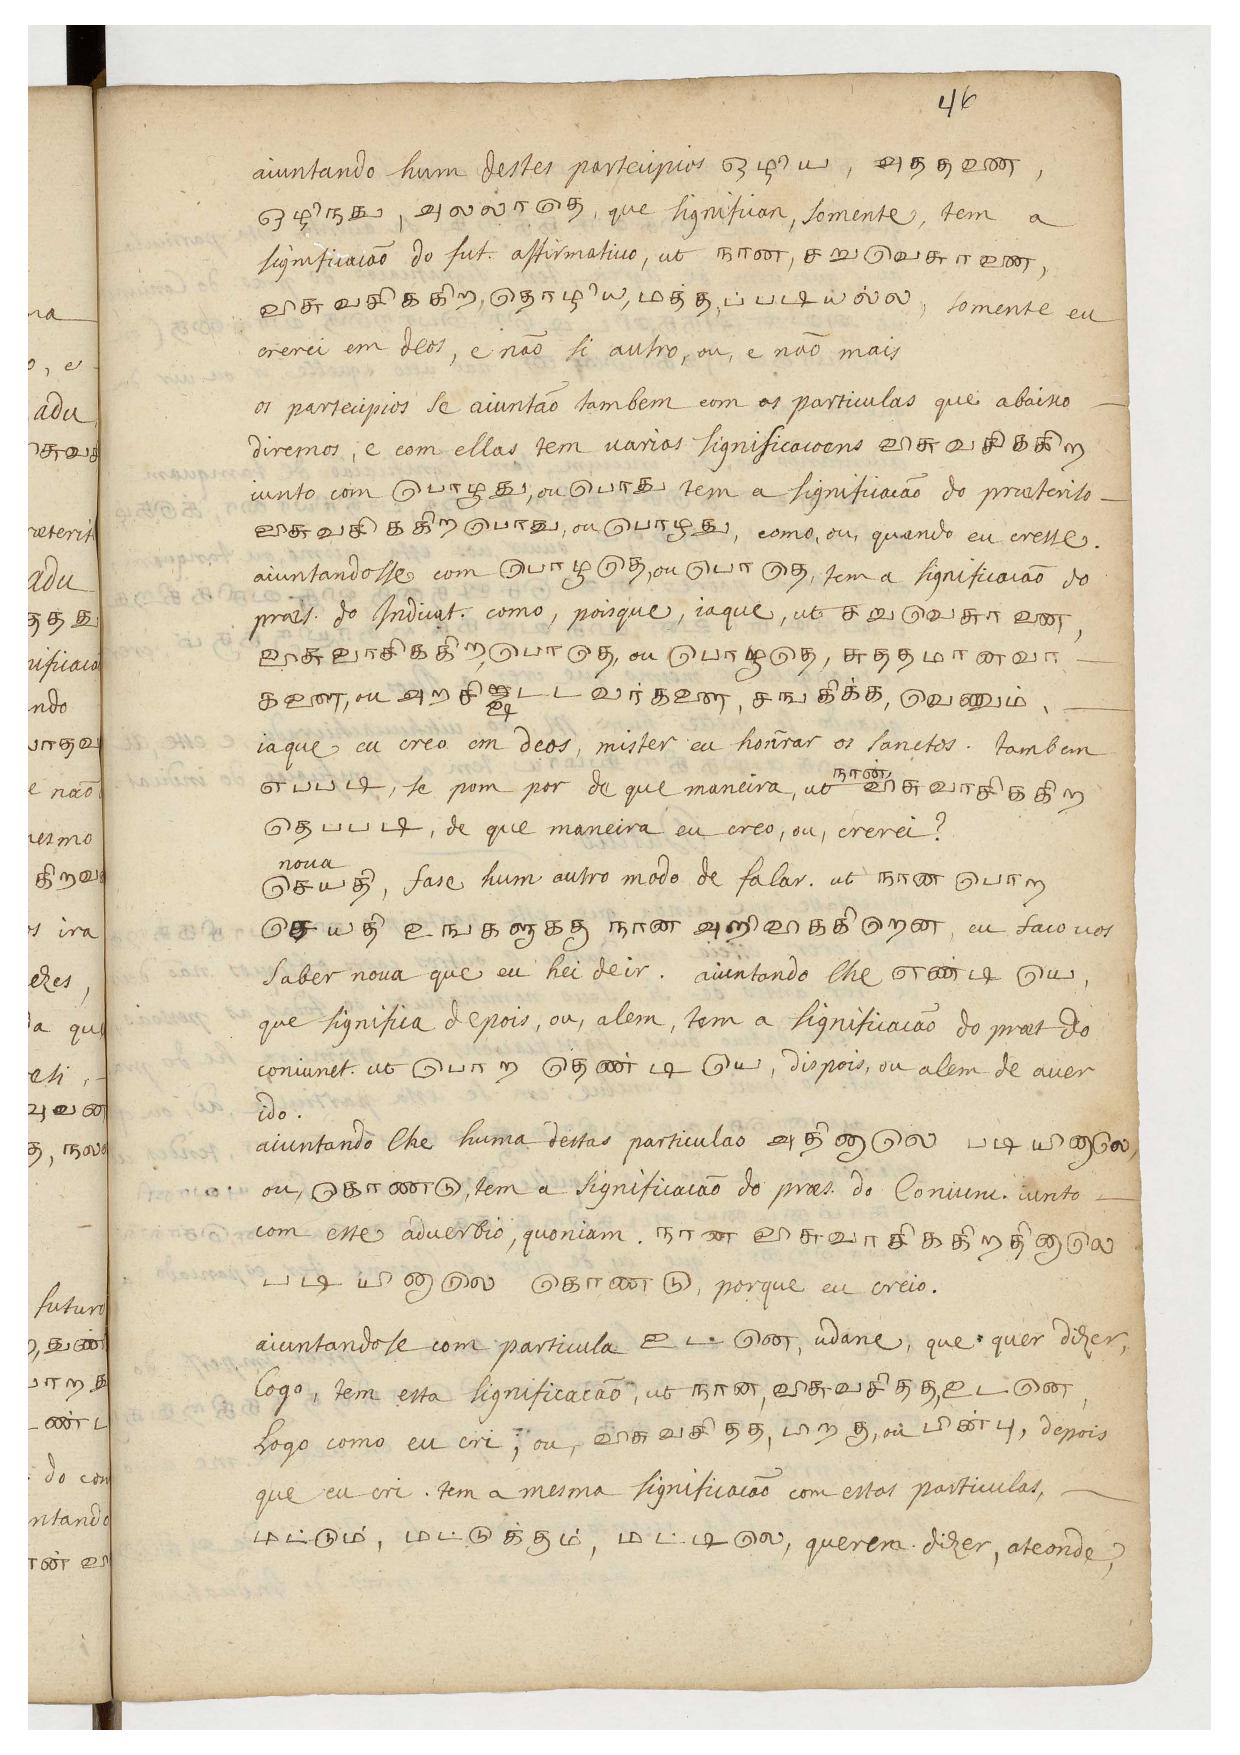 46
aiuntando hum destes partecipios ஒழிய, அததவண,
ஒழிநது, அலலாதெ, que significan, somente, tem a
significacaõ do fut. affirmatiuo, ut நான, சறுவெசுரவண,
விசுவசிககிற, தொழிய, மத்த,ப்படியல்ல, somente eu
crerei em deos, e naõ si autro, ou, e naõ mais
os partecipios se aiuntaõ tambem com as particulas que abaixo
diremos, e com ellas tem uarias significacoens விசுவசிககிற
iunto com பொழது, ou பொது tem a significacaõ do præterito
விசுவசிககிறபொது, ou பொழது, como, ou, quando eu cresse.
aiuntandosse com பொழதெ, ou பொதெ, tem a significacaõ do
præs. do Indicat. como, poisque, iaque, ut சறுவெசுரவண,
விசுவாசிககிற,பொதெ, ou பொழதெ, சுததமானவா
களை, ou அறசிஷடடவர்களை, சஙகிக்க, வெணும்.
iaque eu creo em deos, mister eu honrar os sanctos. tambem
எபபடி, se pom por de que maneira, ut நான் விசுவாசிககிற
தெபபடி, de que maneira eu creo, ou, crerei?
noua
செயதி, fase hum autro modo de falar. ut நான பொற
செயதி உஙகளுகத நான அறிவிககிறென, eu faco uos
saber noua que eu hei de ir. aiuntando lhe எண்டியெ,
que significa depois, ou, alem, tem a significacaõ do præt do
coniunct. ut பொற தெண்டியெ, dispois, ou alem de auer
ido.
aiuntando lhe huma destas particulas அதினாலெ படியினாலெ,
ou, கொணடு, tem a significacaõ do præs. do Coniunc. iunto
com este aduerbio, quoniam. நான விசுவாசிககிறதினாலெ
படியினாலெ கொணடு, porque eu creio.
aiuntandose com particula உடனெ, udane, que quer dizer,
logo, tem esta significacaõ, ut நான, விசுவசிதத,உடனெ,
Logo como eu cri, ou, விசுவசிதத, பிறகு, ou பின்பு, depois
que eu cri. tem a mesma significacaõ com estas particulas,
மட்டும், மட்டுக்தம், மட்டிலெ, querem dizer, ateonde,